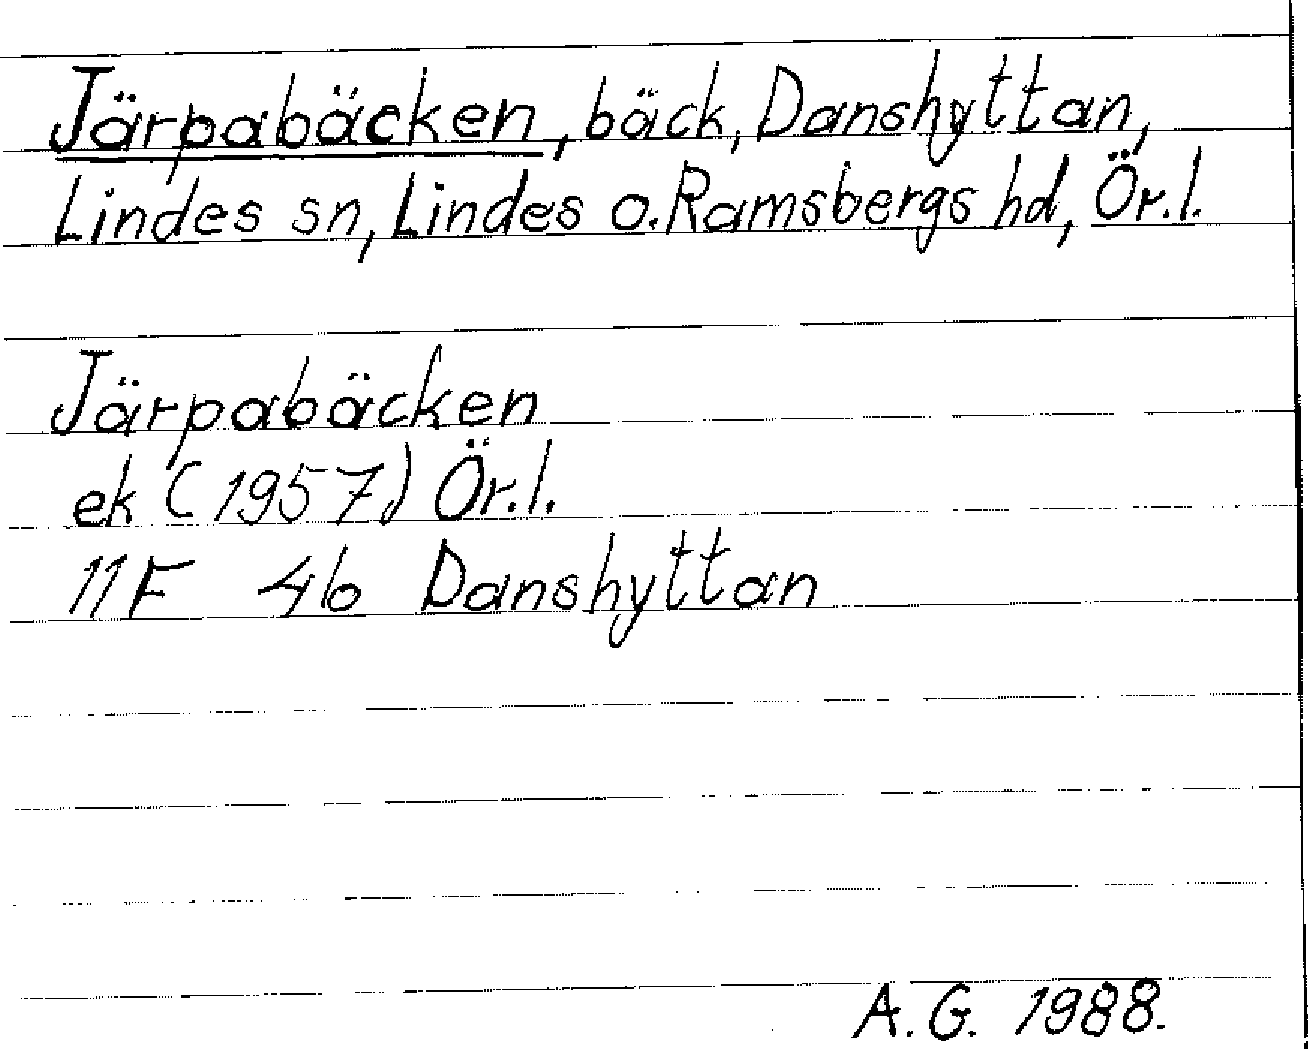 Järpabäcken, bäck, Danshyttan,
Lindes sn, Lindes o. Ramsbergs hd, Ör.l.
Järpabäcken
ek (1957) Ör.l.
11F 4b Danshyttan
A.G. 1988.